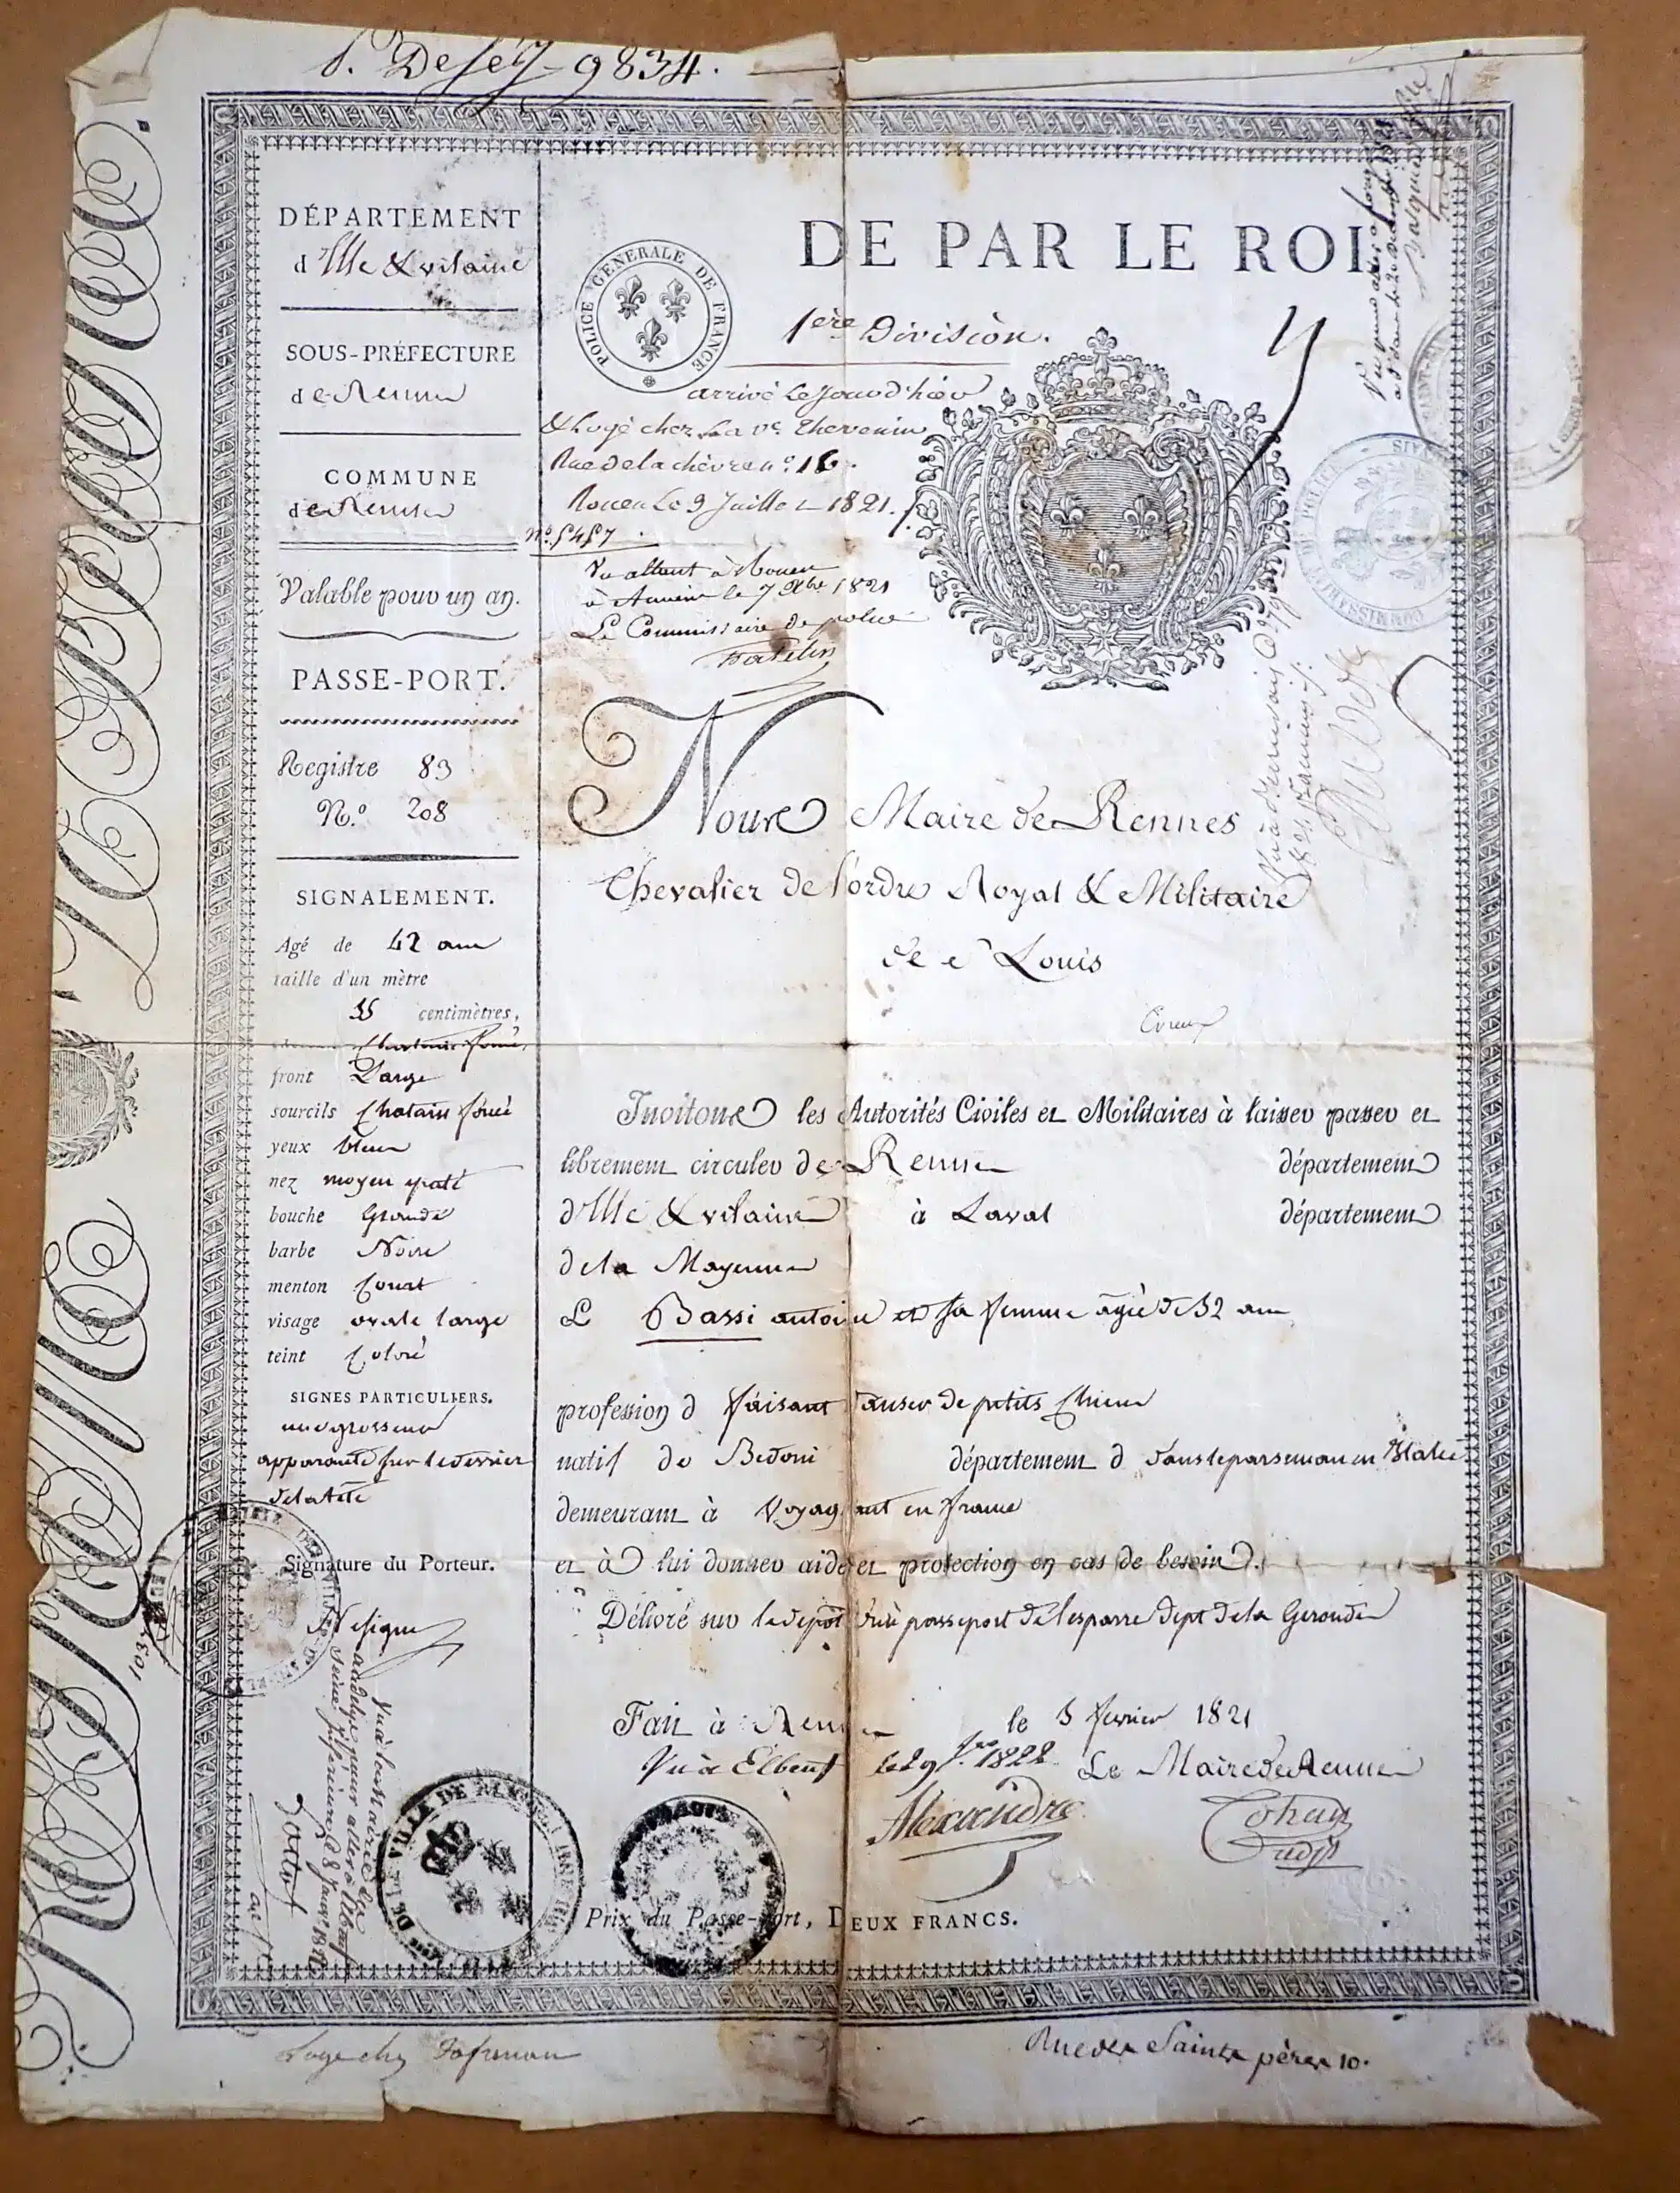 9834.
DÉPARTEMENT
d'Ille & vilaine
SOUS-PRÉFECTURE
de Rennes
COMMUNE
de Rennes
Valable pour un an.
PASSE-PORT.
Registre 83
N.º 208
SIGNALEMENT.
Agé de 42 ans
taille d'un mètre
55 centimètres,
Chatains foncé
front Large
sourcils Chatains foncé
yeux bleus
nez moyen epaté
bouche Grande
barbe Noire
menton Court
visage ovale large
teint Coloré
SIGNES PARTICULIERS.
une grosseur
apparente sur le derrier
de la tete
Signature du Porteur.
Ne signe
DE PAR LE ROI
POLICE GENERALE DE FRANCE
1ère Division.
arrivé le jour d'hier
& Logé chez La ve. Thevenin
Rue de la chèvre nº 16.
Rouen Le 9 Juillet 1821.
nº. 5457
Vu allant à Rouen
à le 7 Xbre 1821
Le Commissaire de police
COMMISSARIAT DE POLICE
Nous Maire de Rennes
Chevalier de l'ordre Royal & Militaire
de St Louis
Invitons les Autorités Civiles et Militaires à laisser passer et
librement circuler de Rennes département
d'Ille & vilaine à Laval département
de la Mayenne
L Bassi antoine et sa femme agée de 32 ans
profession d faisant danser de petits Chiens
natif de Bedoni département d dans le parmesan en Italie
demeurant à Voyageant en france
et à lui donner aide et protection en cas de besoin.
Délivré sur le depot d'un passeport de lesparre dept de la Gironde
Fait à Rennes le 5 fevrier 1821
Vu à Elbeuf le 29 1822 Le Maire de Rennes
Alexandre
Prix du Passe-port, DEUX FRANCS.
Loge chez
Rue des Saints pères 10.
ROYAUME DE FRANCE.